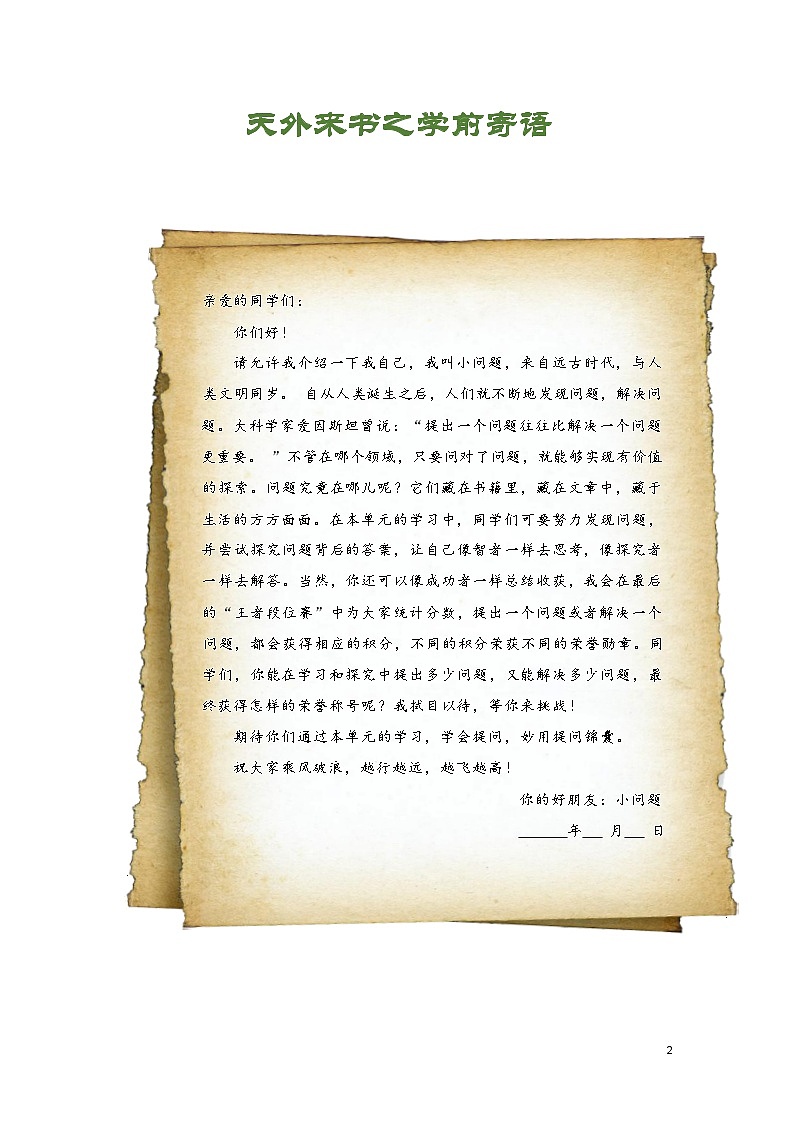 天外来书之学前寄语
亲爱的同学们：
你们好！
请允许我介绍一下我自己，我叫小问题，来自远古时代，与人
类文明同岁。 自从人类诞生之后，人们就不断地发现问题，解决问
题。大科学家爱因斯坦曾说：“提出一个问题往往比解决一个问题
更重要。 ”不管在哪个领域，只要问对了问题，就能够实现有价值
的探索。问题究竟在哪儿呢？它们藏在书籍里，藏在文章中，藏于
生活的方方面面。在本单元的学习中，同学们可要努力发现问题，
并尝试探究问题背后的答案，让自己像智者一样去思考，像探究者
一样去解答。当然，你还可以像成功者一样总结收获，我会在最后
的“王者段位赛”中为大家统计分数，提出一个问题或者解决一个
问题，都会获得相应的积分，不同的积分荣获不同的荣誉勋章。同
学们，你能在学习和探究中提出多少问题，又能解决多少问题，最
终获得怎样的荣誉称号呢？我拭目以待，等你来挑战！
期待你们通过本单元的学习，学会提问，妙用提问锦囊。
祝大家乘风破浪，越行越远，越飞越高！
你的好朋友：小问题
______年___ 月___ 日
2